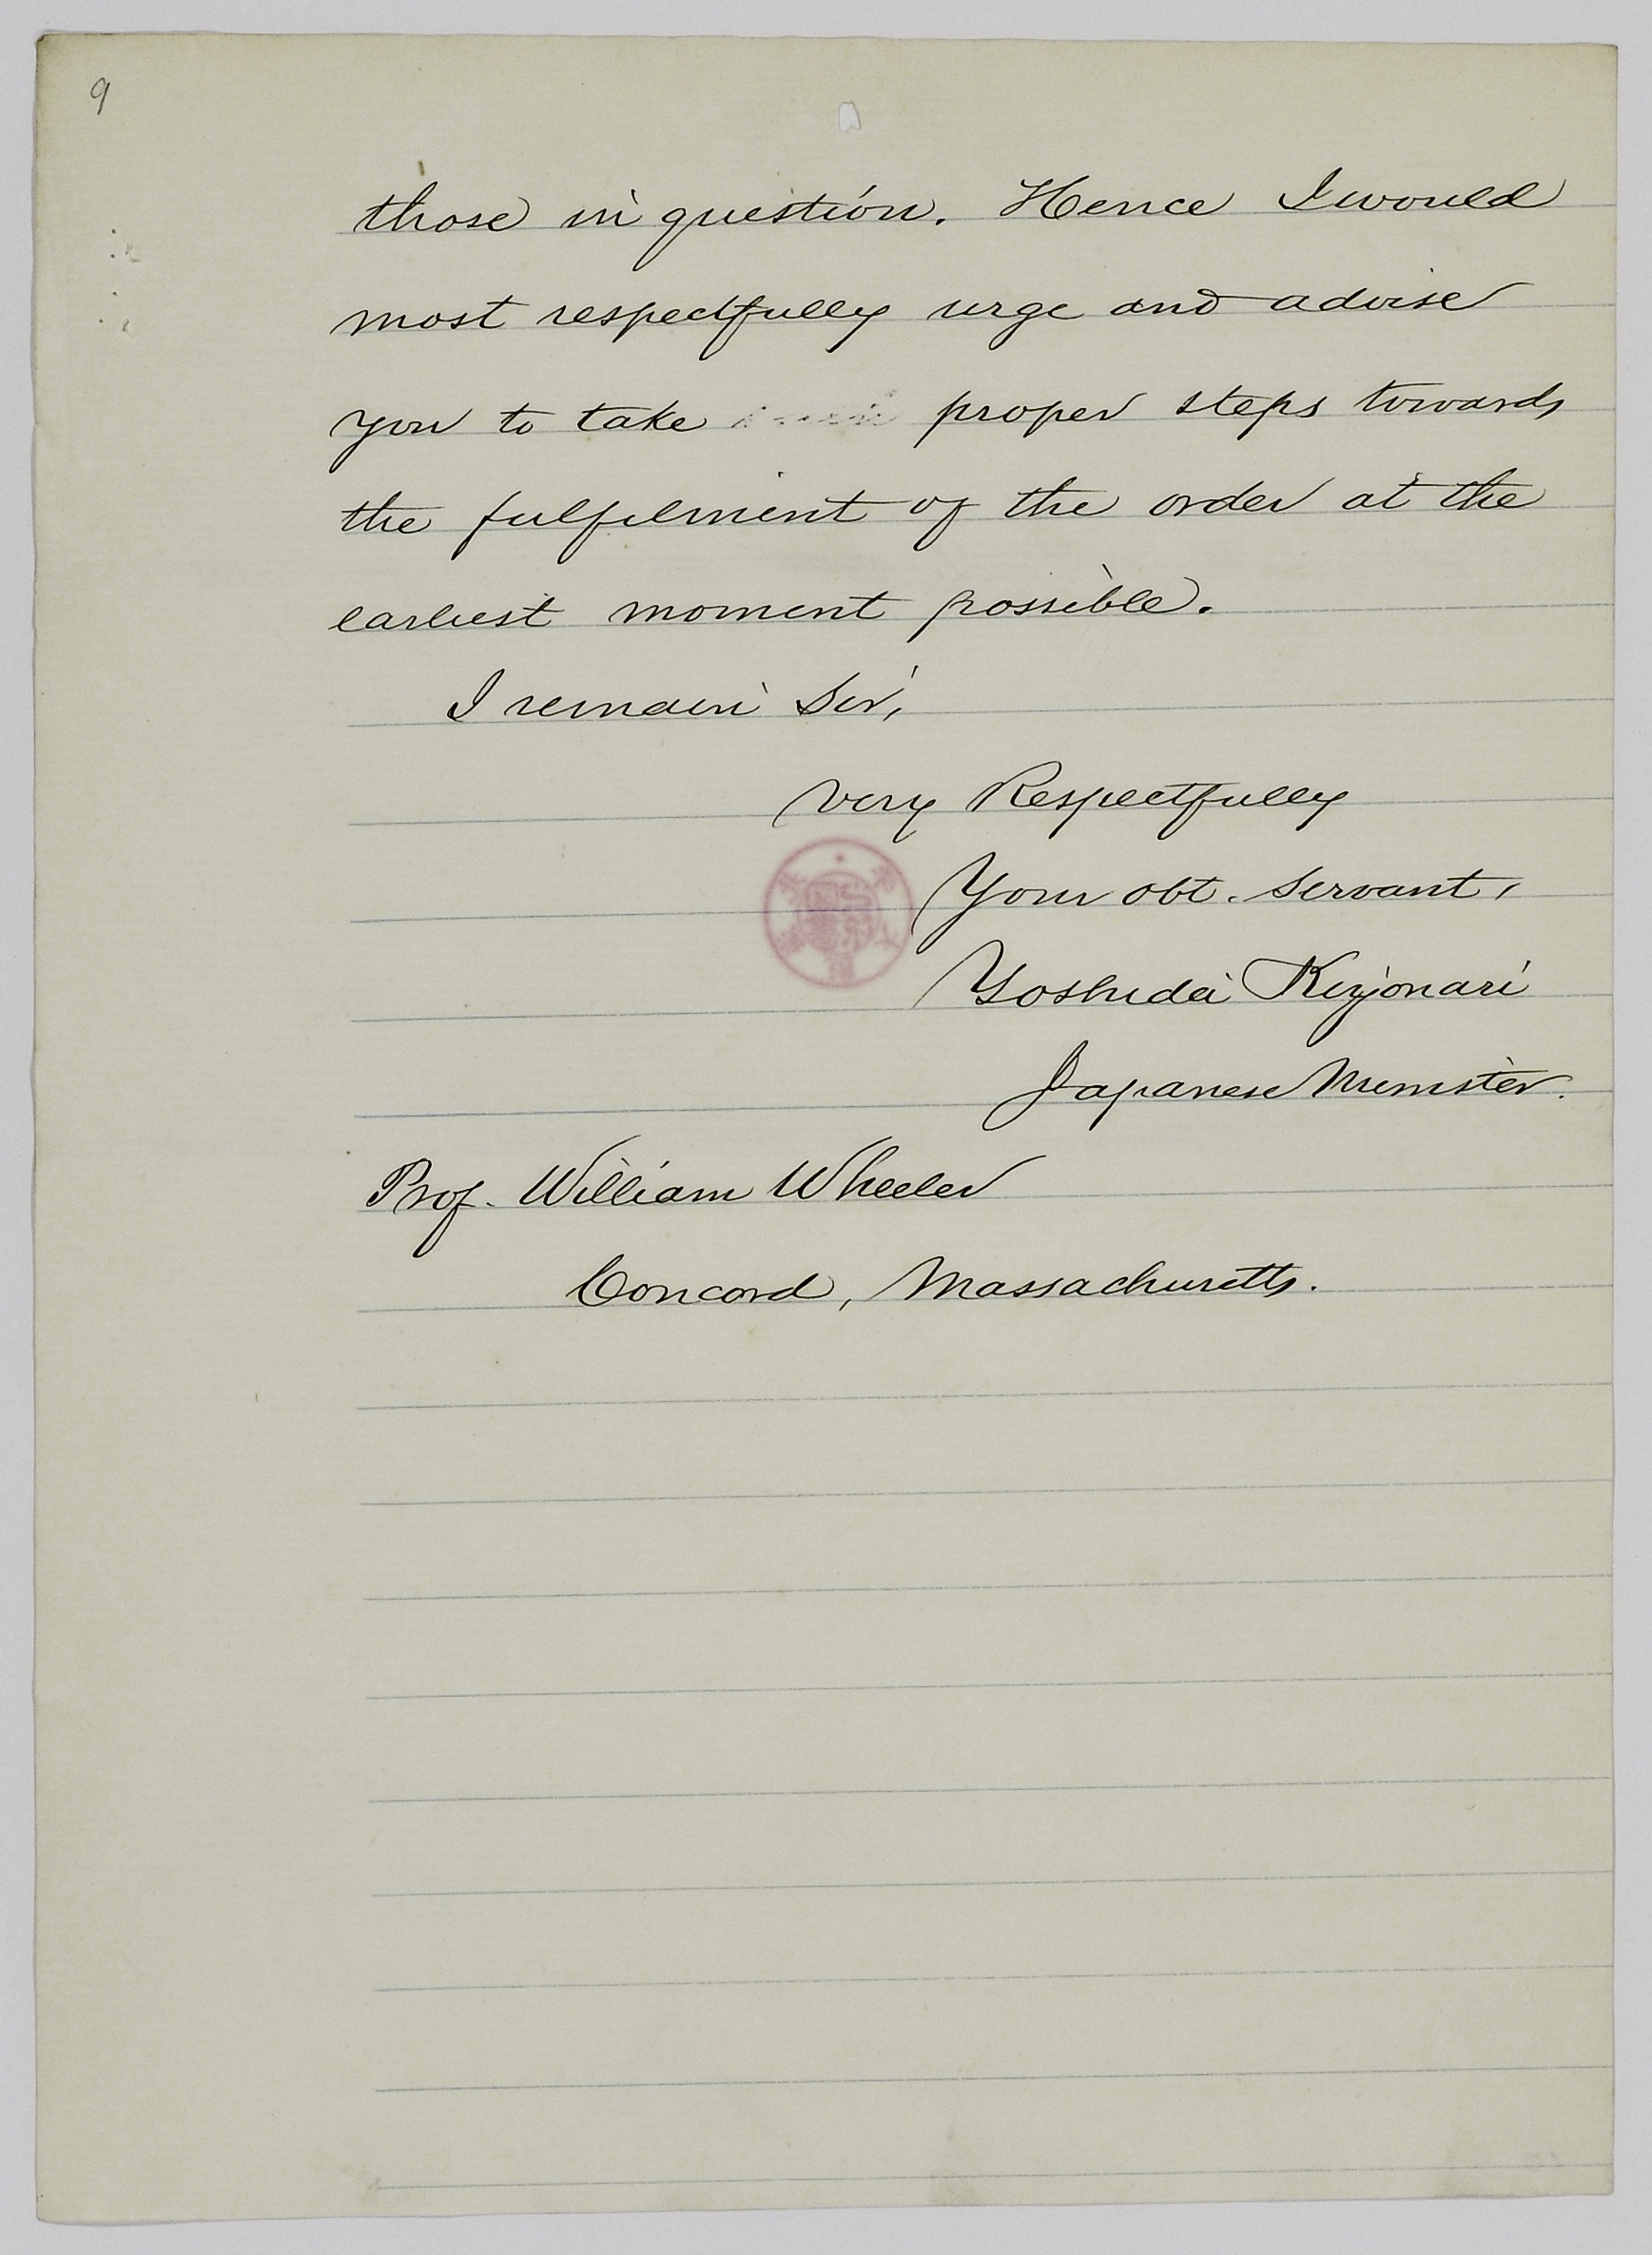 9
those in question. Hence I would
most respectfully urge and advise
you to take proper steps towards
the fulfilment of the order at the
earliest moment possible.
I remain Sir,
Very Respectfully
Your obt. Servant,
Yoshida Kiyonari
Japanese Minister.
Prof. William Wheeler
Concord, Massachusetts.